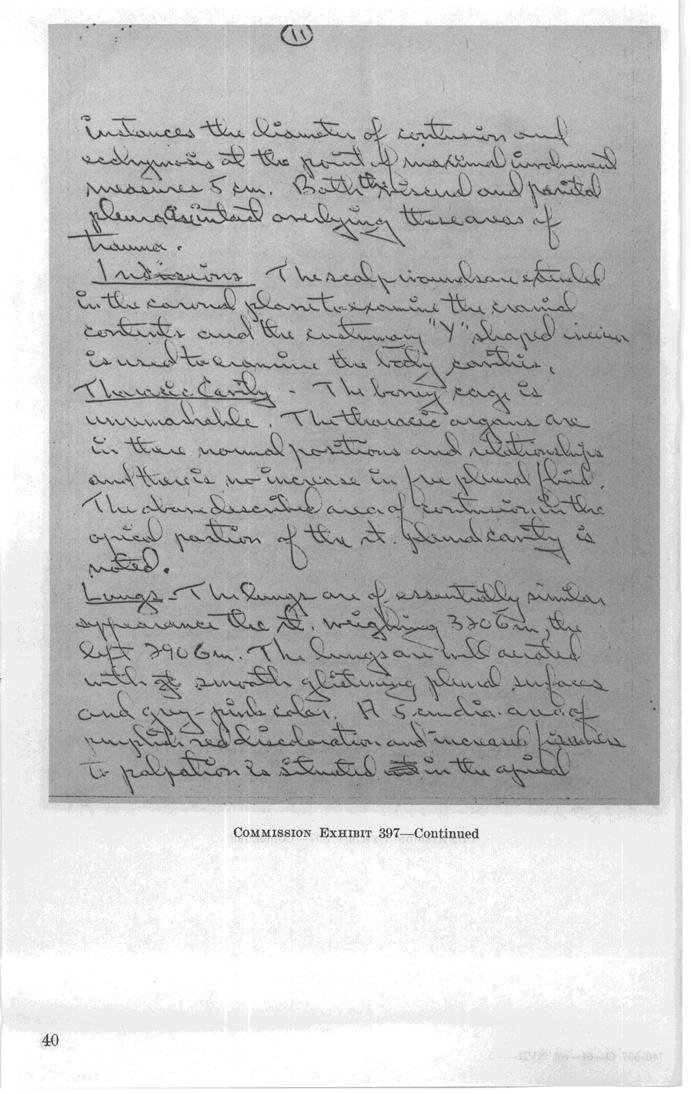 11
instances the diameter of contusion and
ecchymosis at the point of maximal involvement
measures 5 cm. Both the visceral and parietal
pleura is intact overlying these areas of
trauma.
Incisions The scalp wounds are extended
in the coronal plane to examine the cranial
contents and the customary "Y" shaped incision
is used to examine the body cavities.
Thoracic Cavity - The boney cage is
unremarkable. The thoracic organs are
in their normal positions and relationships
and there is no increase in free pleural fluid.
The above described area of contusion in the
apical portion of the rt. pleural cavity is
noted.
Lungs - The lungs are of essentially similar
appearance the rt. weighing 320 Gm, the
left 290 Gm. The lungs are well aerated
with smooth glistening pleural surfaces
and grey-pink color. A 5 cm dia. area of
purplish red discoloration and increased firmness
to palpation is situated in the apical
COMMISSION EXHIBIT 397—Continued
40